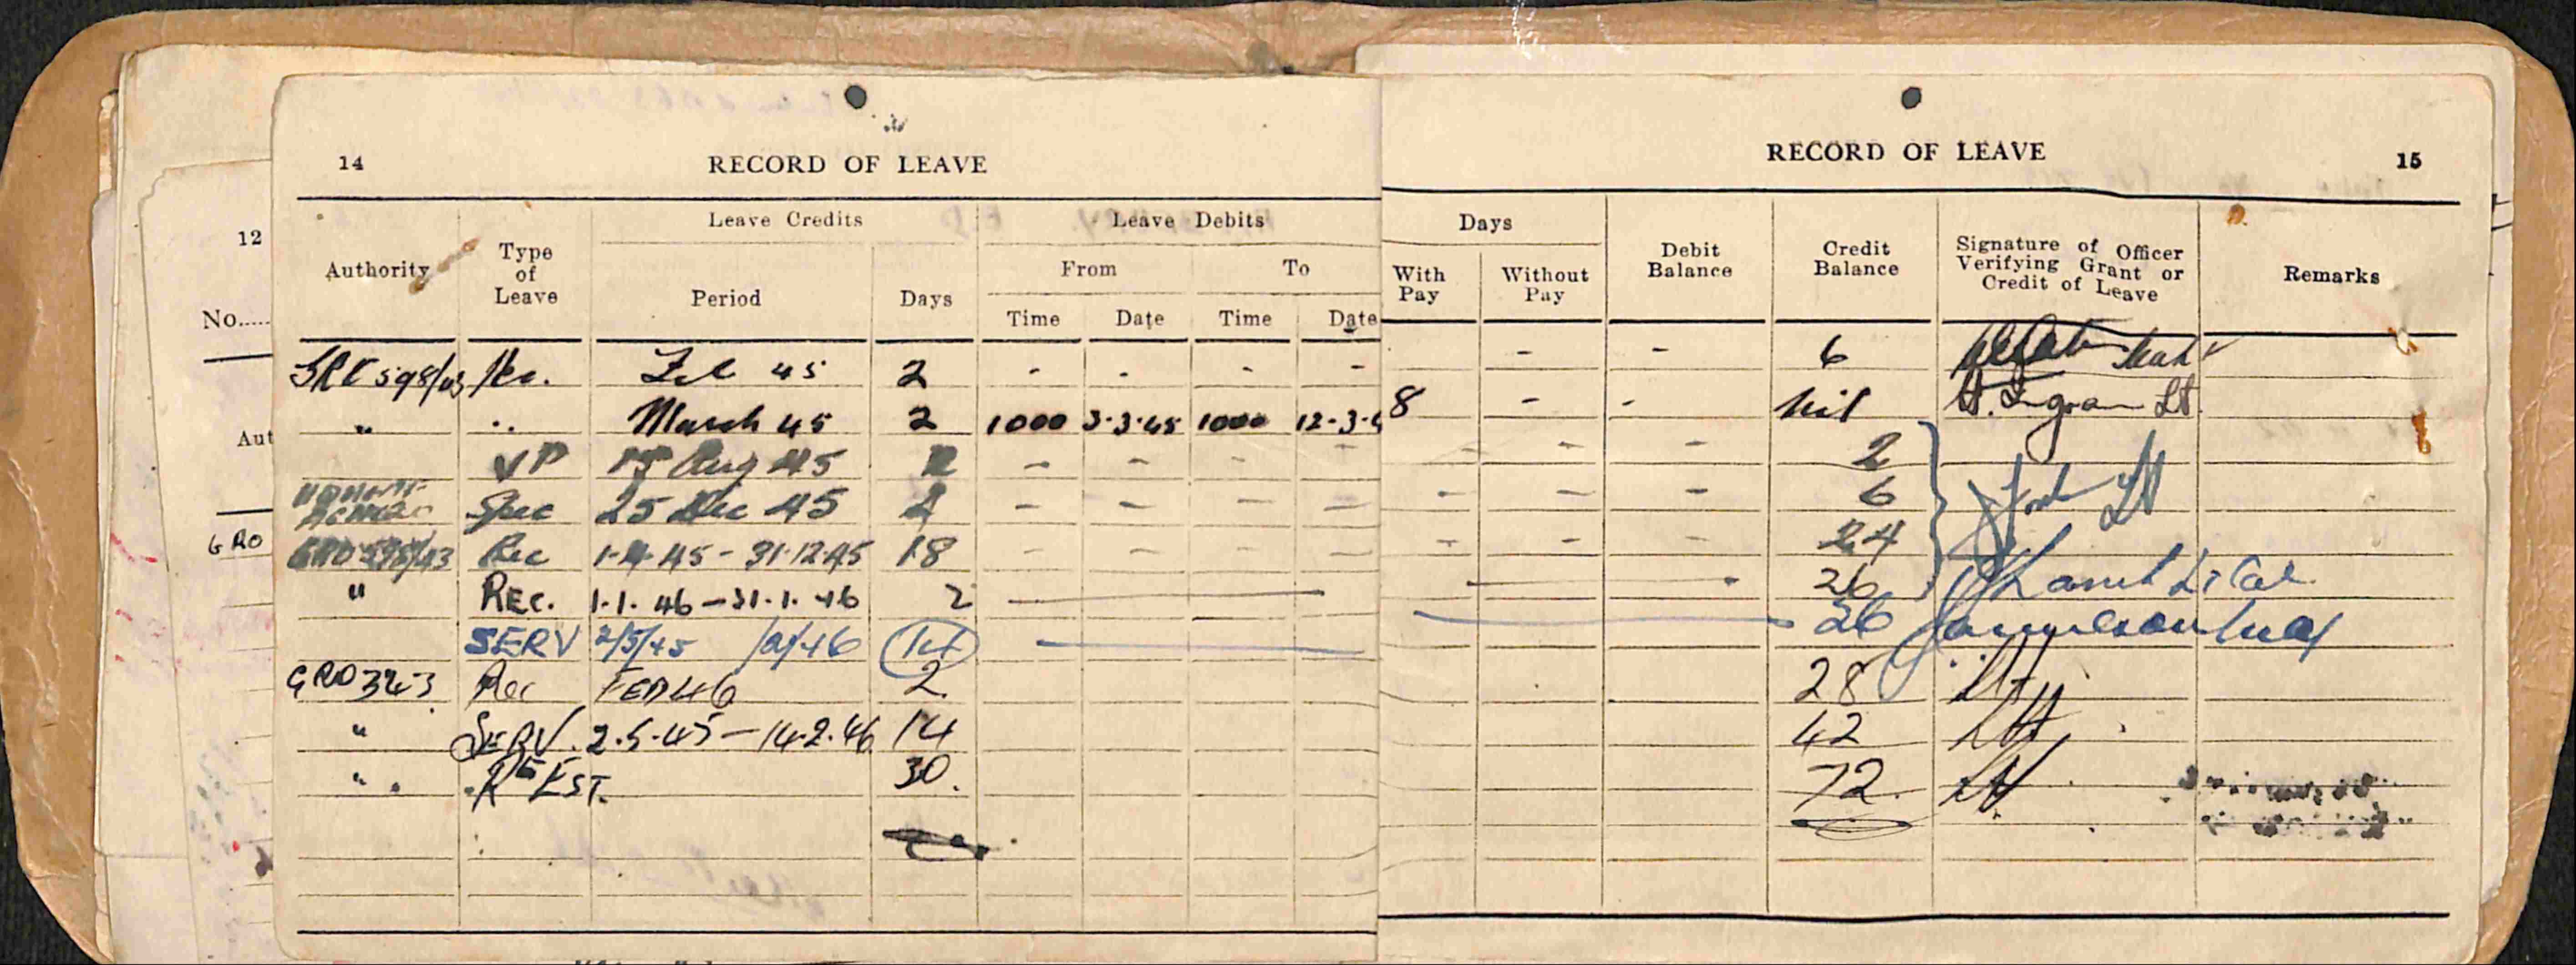 14 RECORD OF LEAVE
RECORD OF LEAVE 15
12
No.....
Aut
GRO
Authority Type of Leave Leave Credits Leave Debits
Period Days From To
Time Date Time Date
Days Debit Balance Credit Balance Signature of Officer Verifying Grant or Credit of Leave Remarks
With Pay Without Pay
598/43 Rec. Feb 45 2 - - - - - - 6
" " March 45 2 1000 3.3.45 1000 12.3.4 8 - - Nil H. Ingram Lt.
VP 15 Aug 45 - - - - - - - 2
Spec 25 Dec 45 - - - - - - - 6 Lt
GRO 598/43 Rec 1.4.45 - 31.12.45 18 - - - - - - - 24
" REC. 1.1.46 - 31.1.46 2 26 Lt Col
SERV 2/5/45 /2/46 14 26
GRO 323 Rec FEB 46 2 28
" SERV. 2.5.45 - 14.2.46 14 42
" REEST. 30. 72.